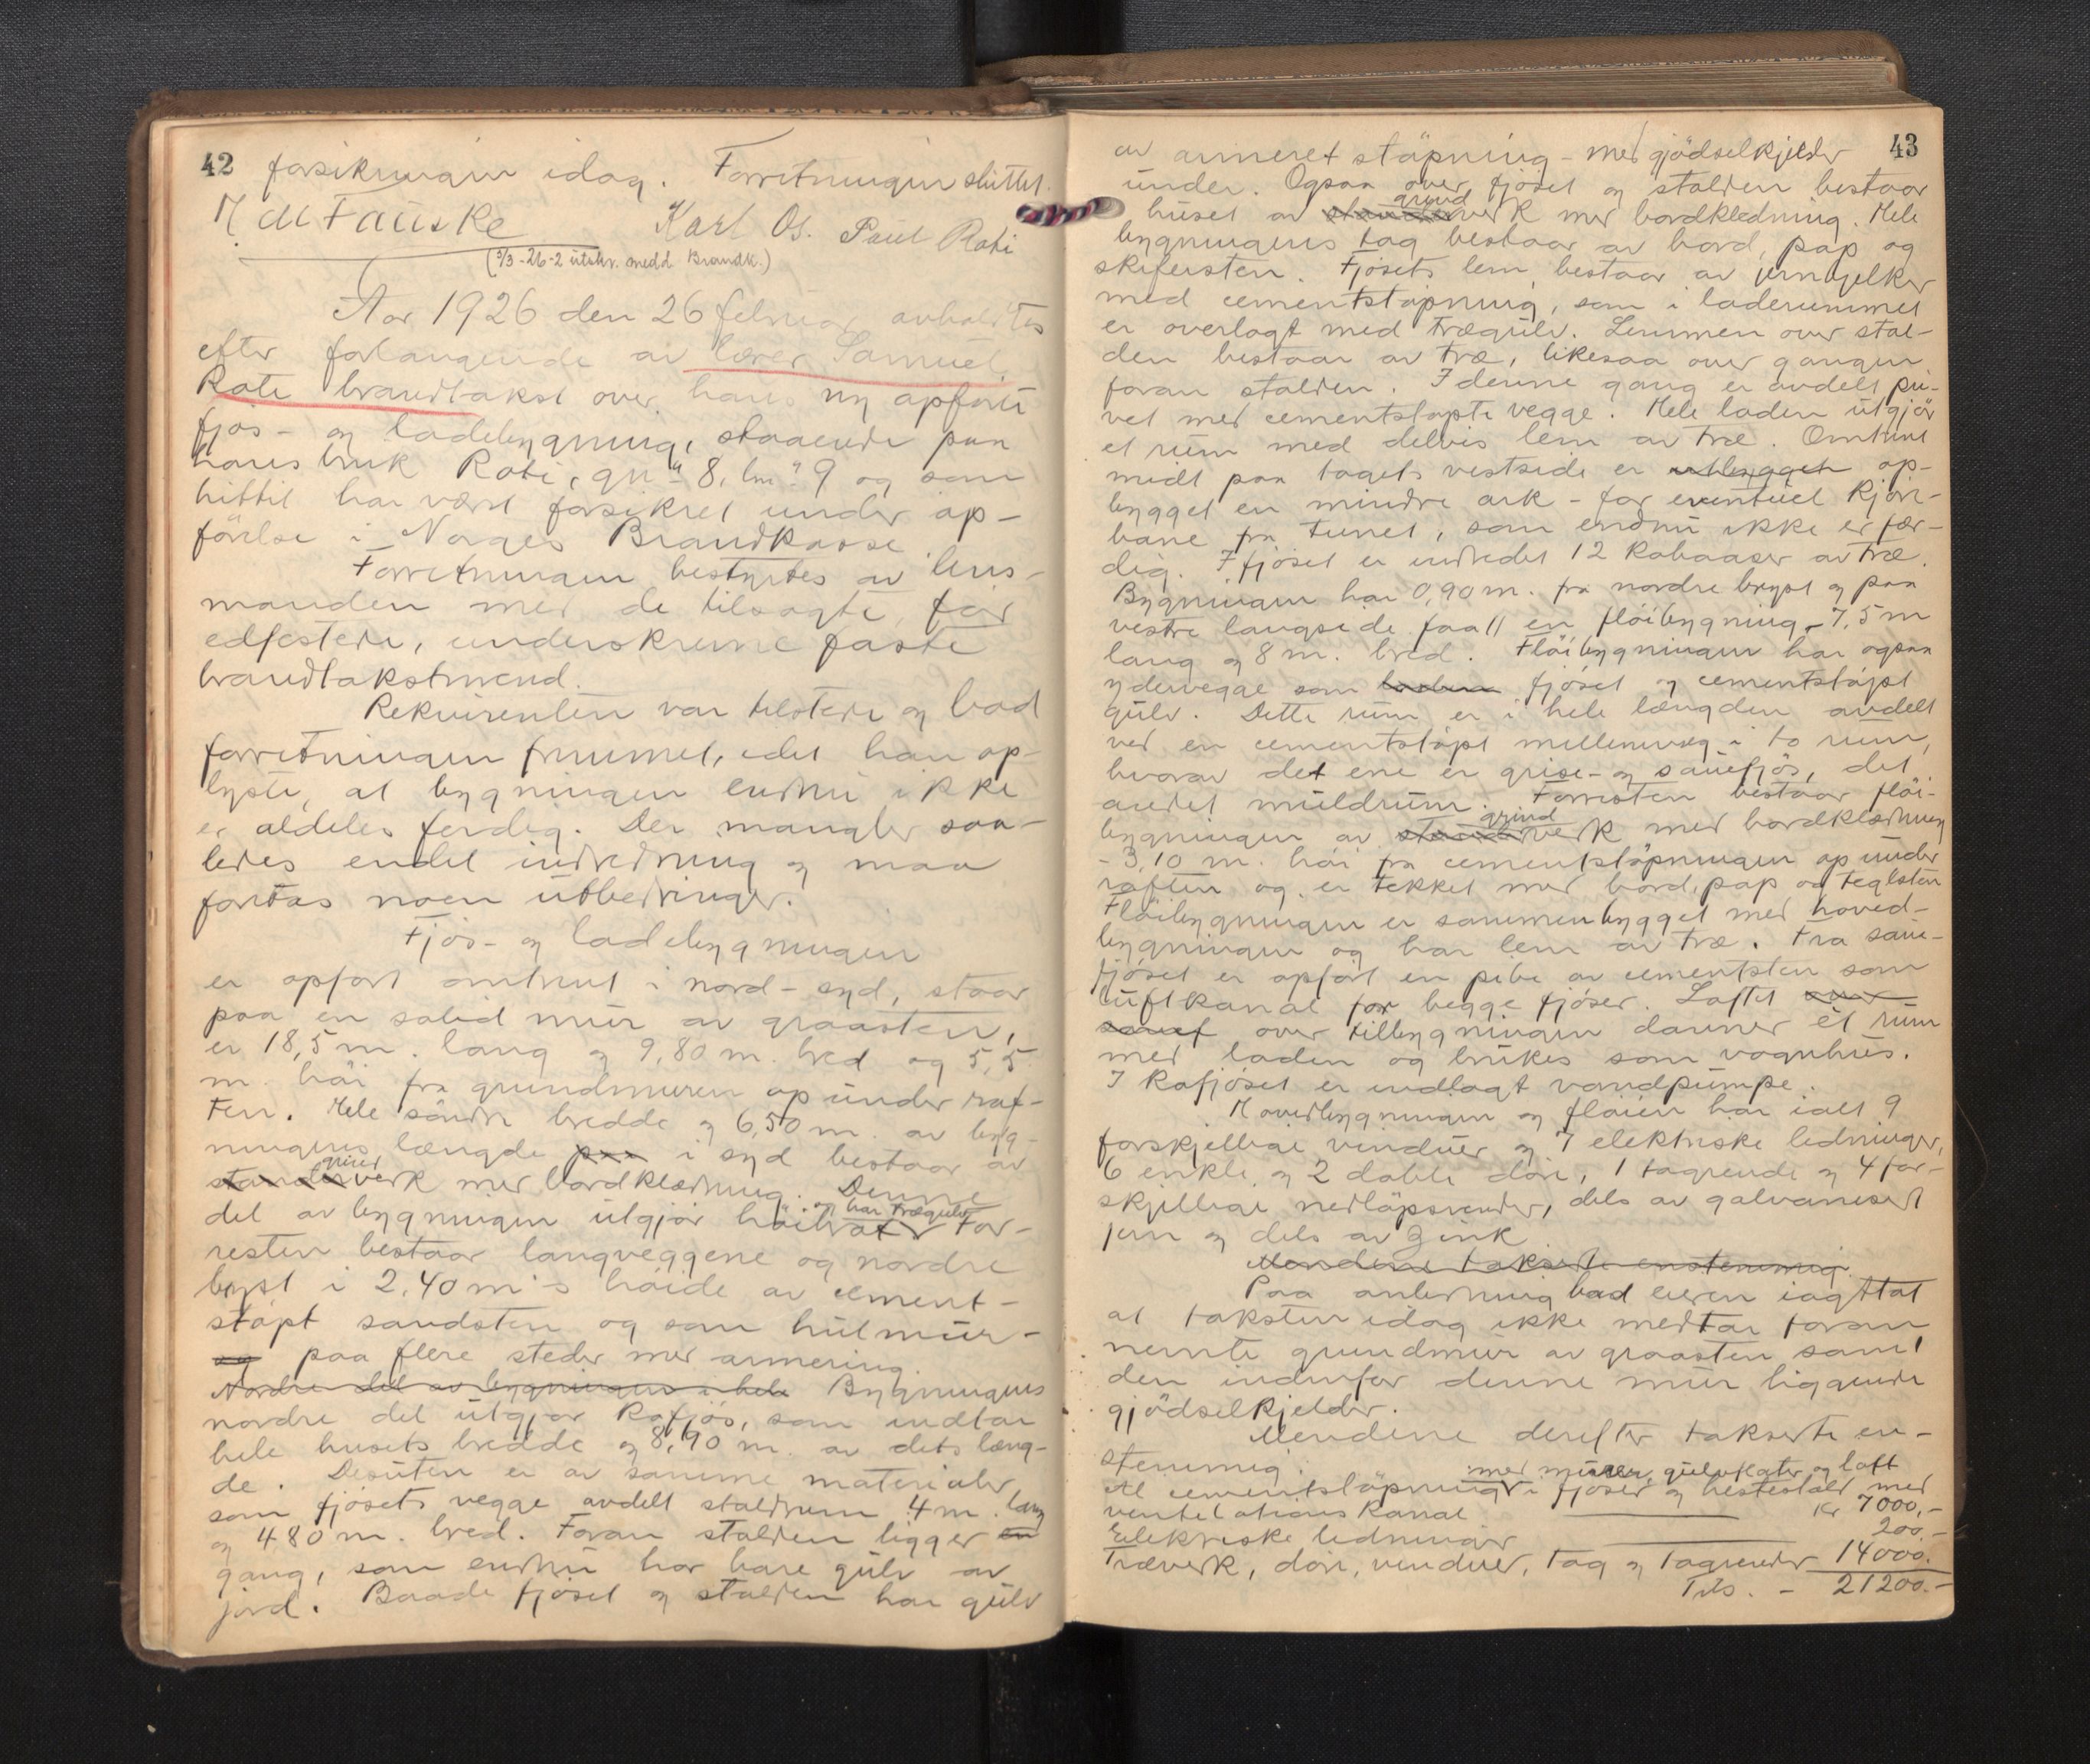 42
forsikringen idag. Forretningen sluttet.
H M Fauske Karl Os. Paul Rati
(3/3-26-2 utskr. medd Brandk.)
Aar 1926 den 26 februar avholdtes
efter forlangende av lærer Samuel
Rati brandtakst over hans ny opførte
fjøs- og ladebygning, staaende paa
hans bruk Rati, gn. 8, bn. 9 og som
hittil har været forsikret under op-
førelse i Norges Brandkasse.
Forretningen bestyrtes av lens-
manden med de tilsagte, før
edfestede, underskrevne faste
brandtakstmænd.
Rekvirenten var tilstede og bad
forretningen fremmet, idet han op-
lyste, at bygningen endnu ikke
er aldeles ferdig. Der mangler saa-
ledes endel indredning og maa
foretas noen utbedringer.
Fjøs- og ladebygningen
er opført omtrent i nord-syd, staar
paa en solid mur av graasten,
er 18,5 m. lang og 9,80 m. bred og 5,5
m. høi fra grundmuren op under raf-
ten. Hele søndre bredde og 6,50 m. av byg-
ningens længde paa i syd bestaar av
grind
standerverk med bordklædning. Denne
del av bygningen utgjør høibrot og har trægulv. For-
resten bestaar langveggene og nordre
bryst i 2,40 m's høide av cement-
støpt sandsten og som hulmur -
og paa flere steder med armering.
Nordre del av bygningen i hele Bygningens
nordre del utgjør kofjøs, som indtar
hele husets bredde og 8,90 m. av dets læng-
de. Desuten er av samme materialer
som fjøsets vegge avdelt staldrum 4 m. lang
og 480 m. bred. Foran stalden ligger en
gang, som endnu har bare gulv av
jord. Baade fjøset og stalden har gulv
43
av armeret støpning - med gjødselkjelder
under. Ogsaa over fjøset og stalden bestaar
grind
huset av standerverk med bordkledning. Hele
bygningens tag bestaar av bord, pap og
skifersten. Fjøsets lem bestaar av jernbjelker
med cementstøpning, som i laderummet
er overlagt med trægulv. Lemmen over stal-
den bestaar av træ, likesaa over gangen
foran stalden. I denne gang er avdelt pri-
vet med cementstøpte vegge. Hele laden utgjør
et rum med delvis lem av træ. Omtrent
midt paa tagets vestside er utbygget op-
bygget en mindre ark - for eventuel kjøre-
bane fra tunet, som endnu ikke er fær-
dig. I fjøset er indredet 12 kobaaser av træ.
Bygningen har 0,90 m. fra nordre bryst og paa
vestre langside faatt en fløibygning - 7,5 m
lang og 8 m. bred. Fløibygningen har ogsaa
ydervegge som fjøset og cementstøpt
gulv. Dette rum er i hele længden avdelt
ved en cementstøpt mellemveg i to rum,
hvorav det ene er grise- og sauefjøs, det
andet muldrum. Forresten bestaar fløi-
grind
bygningen av standerverk med bordklædning
- 3,10 m. høi fra cementstøpningen op under
raften og er tekket med bord, pap og teglsten
Fløibygningen er sammenbygget med hoved-
bygningen og har lem av træ. Fra saue-
fjøset er opført en pibe av cementsten som
luftkanal for begge fjøser. Loftet over
sauef over tilbygningen danner ét rum
med laden og brukes som vognhus.
I kofjøset er indlagt vandpumpe.
Hovedbygningen og fløien har ialt 9
forskjellige vinduer og 7 elektriske ledninger,
6 enkle og 2 doble døre, 1 tagrende og 4 for-
skjellige nedløpsrender, dels av galvanisert
jern og dels av zink
Mendene takserte enstemmig.
Paa anledning bad eieren iagttat
at taksten idag ikke medtar foran
nevnte grundmur av graasten samt
den indenfor denne mur liggende
gjødselkjelder.
Mendene derefter takserte en-
stemmig:
med murer, gulvkater og loft
Al cementstøpning i fjøser og hestestald med
ventilationskanal kr 7000,-
Elektriske ledninger 200.-
Træverk, døre, vinduer, tag og tagrender 14000.
Tils. - 21200.-